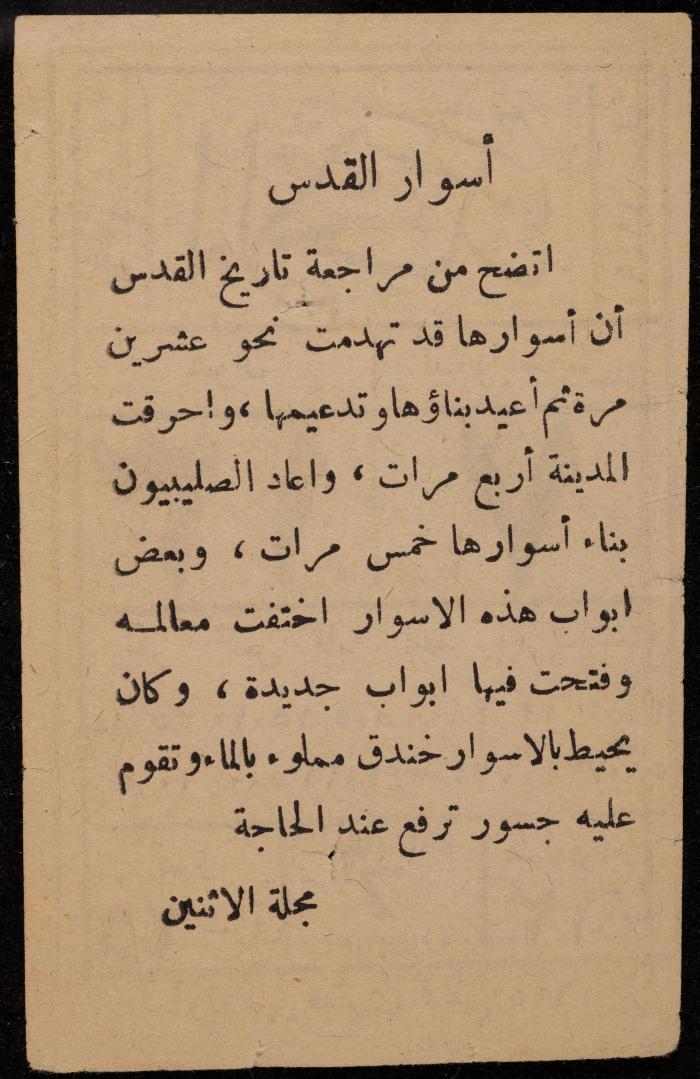 أسوار القدس
اتضح من مراجعة تاريخ القدس
أن أسوارها قد تهدمت نحو عشرين
مرة ثم أعيد بناؤها وتدعيمها ، وإحرقت
المدينة أربع مرات ، واعاد الصليبيون
بناء أسوارها خمس مرات ، وبعض
ابواب هذه الاسوار اختفت معالمه
وفتحت فيها ابواب جديدة ، وكان
يحيط بالاسوار خندق مملوء بالماء وتقوم
عليه جسور ترفع عند الحاجة
مجلة الاثنين